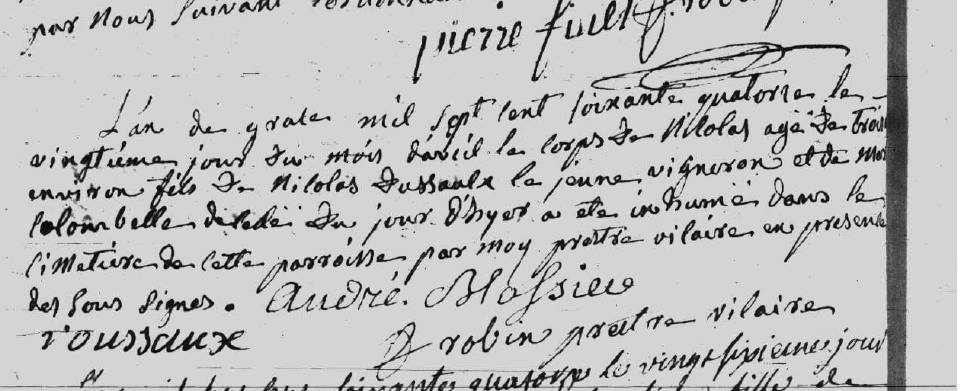 par nous suivant
pierre finet
L'an de grace mil sept cent soixante quatorze le
vingtiéme jour du mois d'avril le corps de Nicolas agé de trois
environ fils de Nicolas dussaulx le jeune vigneron et de
Colombelle decedé du jour d'hyer a eté inhumé dans le
cimetiere de cette parroisse par moy prestre vicaire en presence
des sous signes. andré. Massieu
robin prestre vicaire
soixante quatorze le vingt sixieme jour
fille de